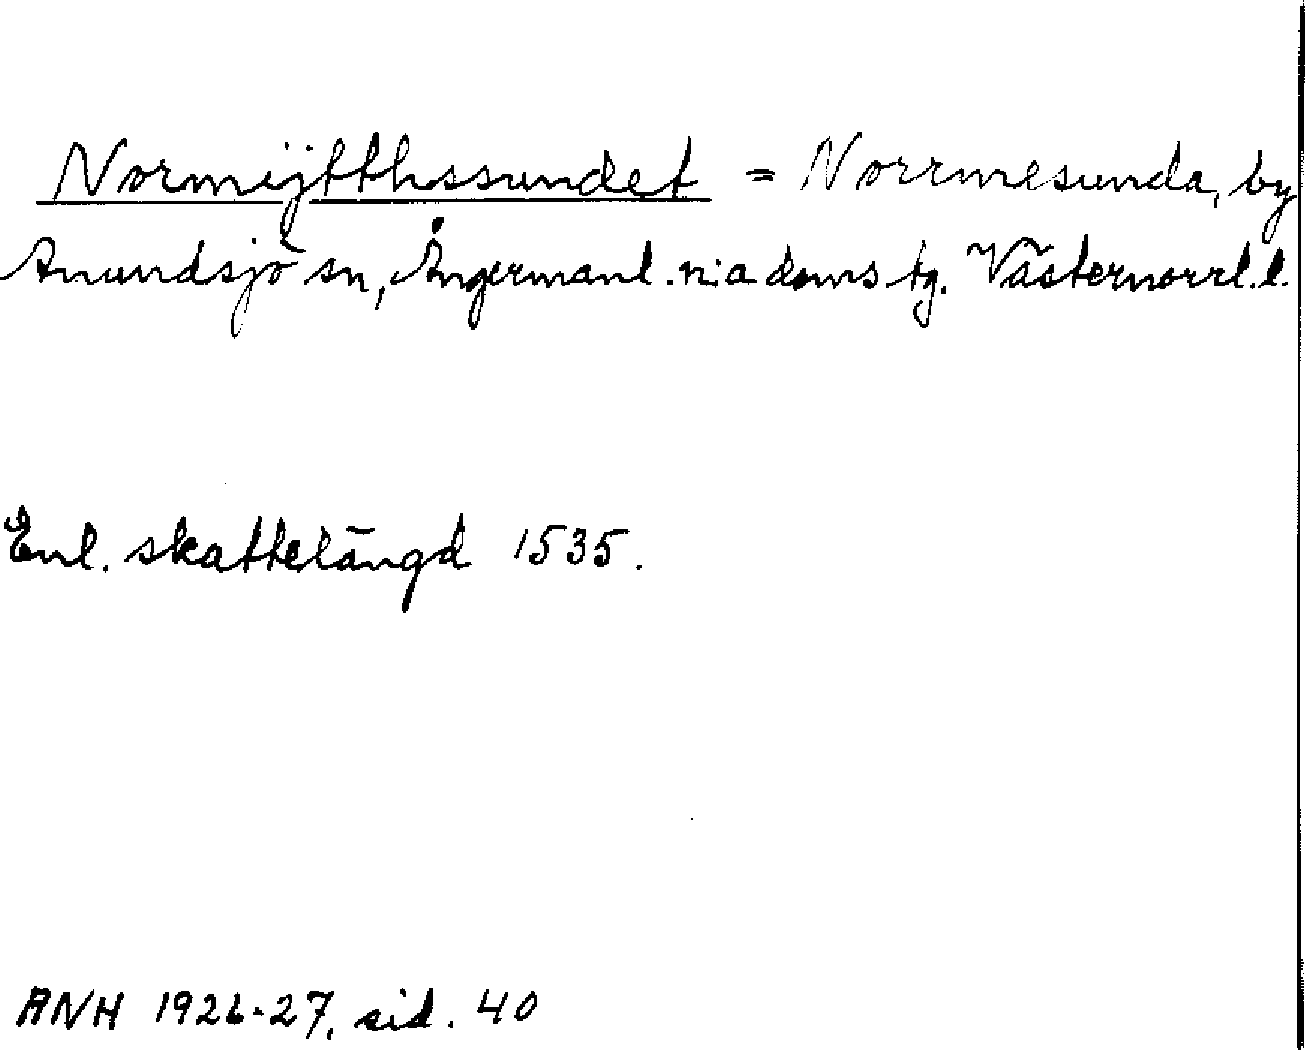 Normijtthssundet = Norrmesunda, by
Anundsjö sn, Ångermanl. n:a doms tg. Västernorrl. l.
Enl. skattelängd 1535.
ANH 1926-27, sid. 40